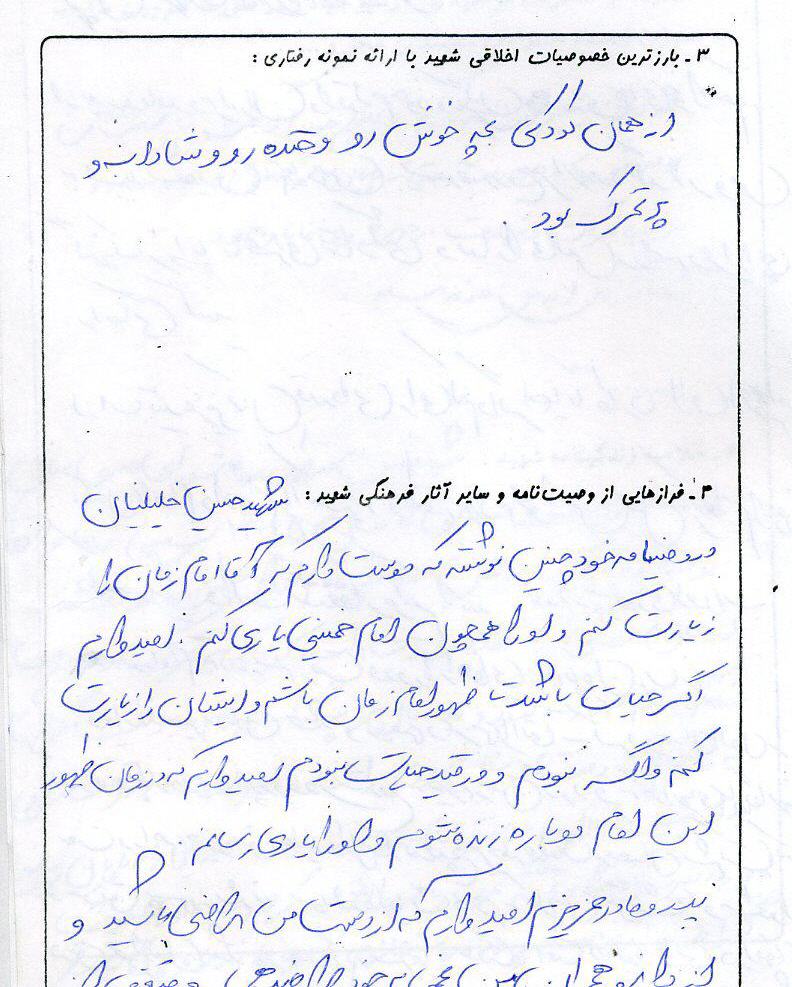 ۳ـ بارزترین خصوصیات اخلاقی شهید با ارائه نمونه رفتاری :
از همان کودکی بچه خوش رو و خنده رو و شادان و
پر تحرک بود .
۴ـ فرازهایی از وصیت‌نامه و سایر آثار فرهنگی شهید : شهید حسین خلیلیان
در وصیتنامه خود چنین نوشته که دوست دارم که آقا امام زمان را
زیارت کنم و او را همچون امام خمینی یاری کنم . امیدوارم
اگر حیات باشد تا ظهور امام زمان باشم و ایشان را زیارت
کنم و اگر نبودم و در قید حیات نبودم امیدوارم که در زمان ظهور
این امام دوباره زنده شوم و او را یاری رسانم .
پدر و مادر عزیزم امیدوارم که از دست من راضی باشید و